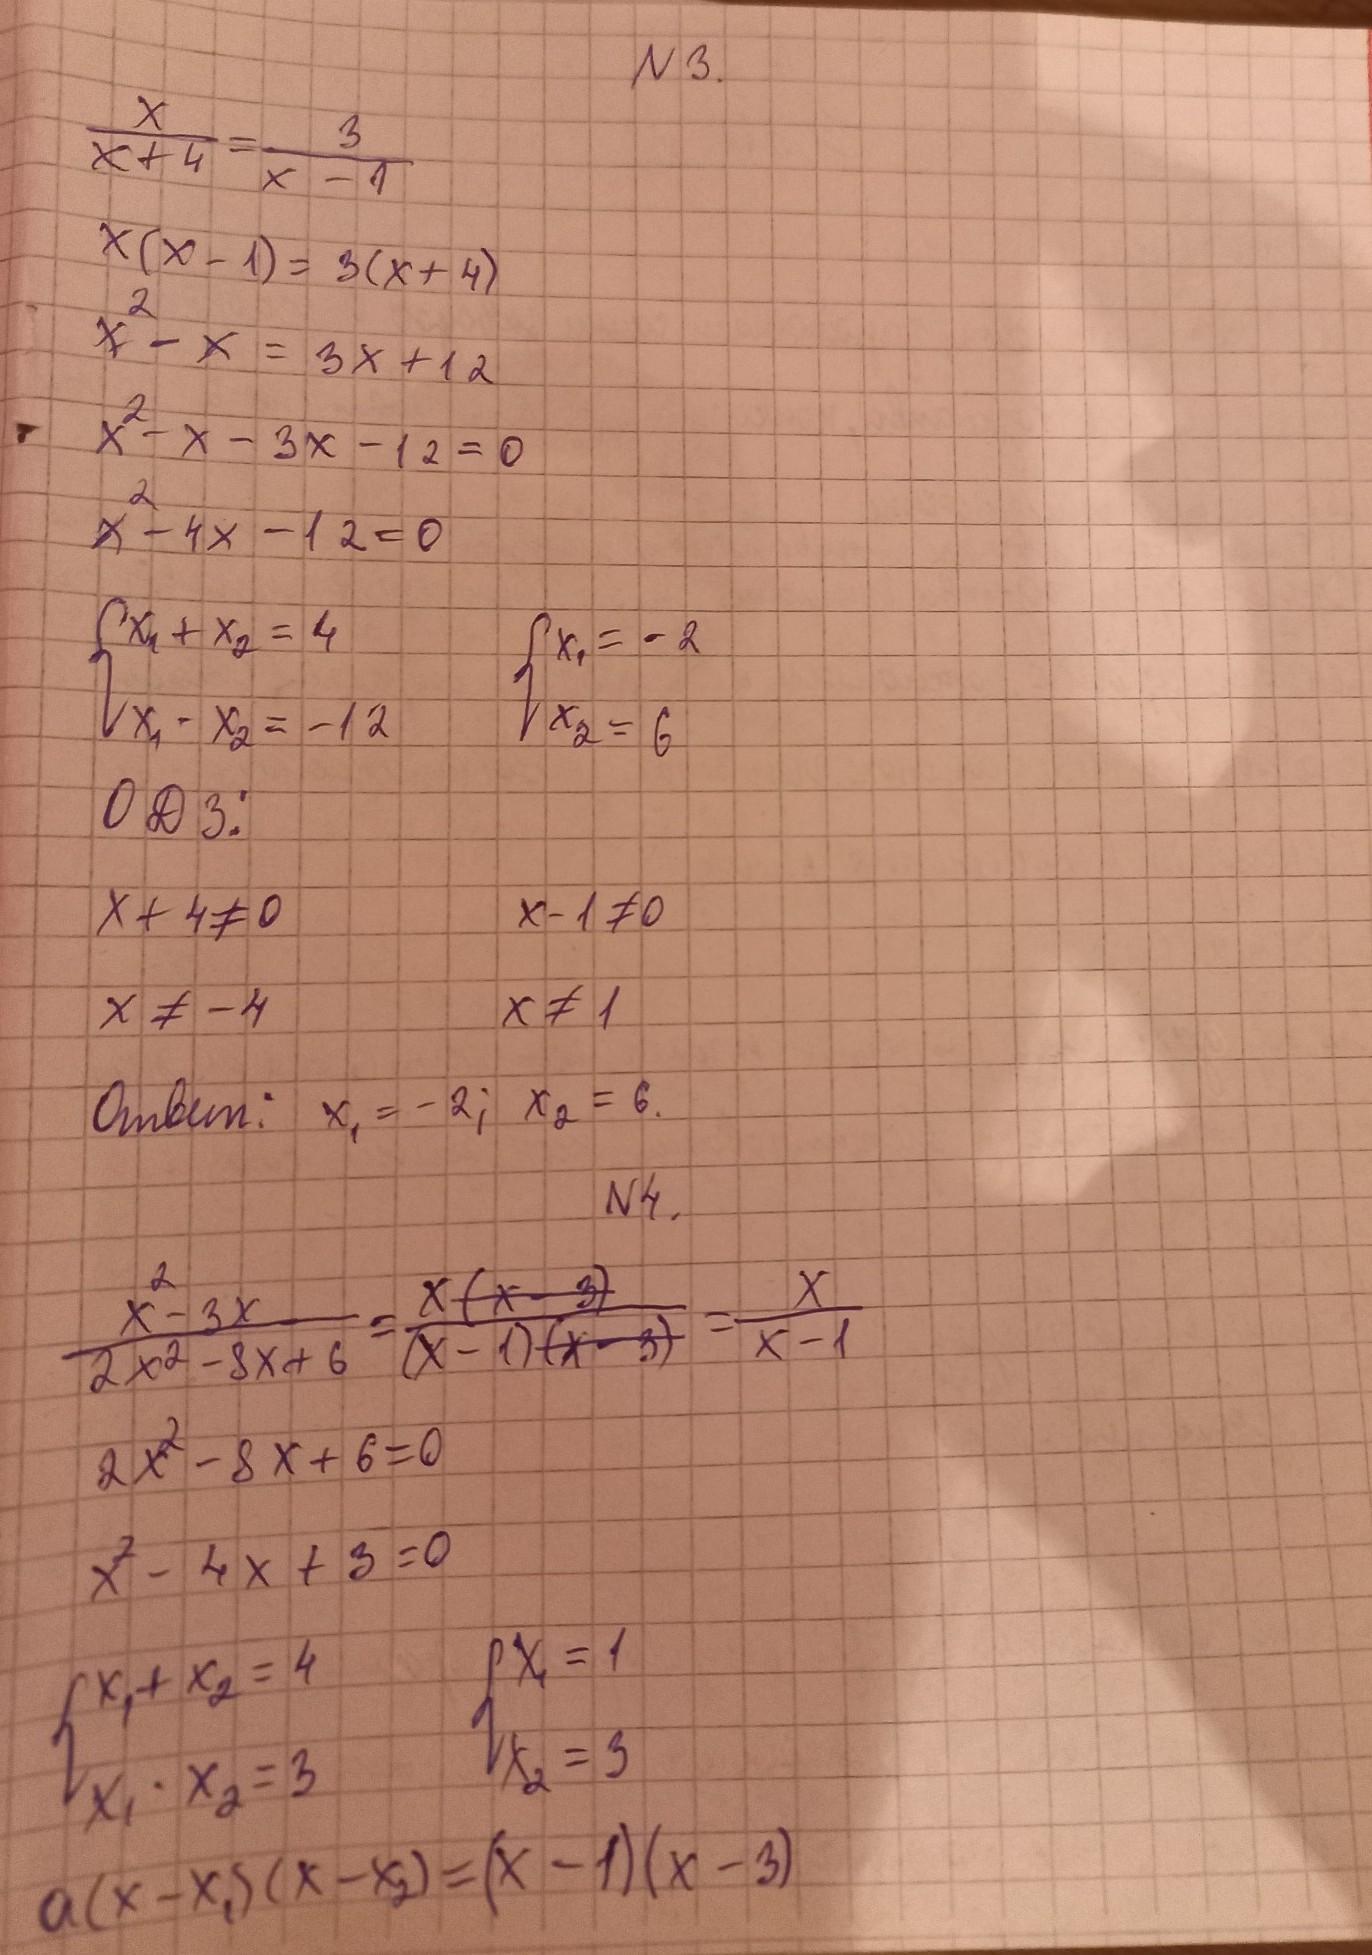 N 3.
x/(x+4) = 3/(x-1)
x(x-1) = 3(x+4)
x² - x = 3x+12
x² - x - 3x - 12 = 0
x² - 4x - 12 = 0
{ x₁ + x₂ = 4 { x₁ = -2
x₁ · x₂ = -12 x₂ = 6
ОДЗ:
x + 4 ≠ 0 x - 1 ≠ 0
x ≠ -4 x ≠ 1
Ответ: x₁ = -2; x₂ = 6.
N4.
(x² - 3x)/(2x² - 8x + 6) = x(x-3)/((x-1)(x-3)) = x/(x-1)
2x² - 8x + 6 = 0
x² - 4x + 3 = 0
{ x₁ + x₂ = 4 { x₁ = 1
x₁ · x₂ = 3 x₂ = 3
a(x-x₁)(x-x₂) = (x-1)(x-3)